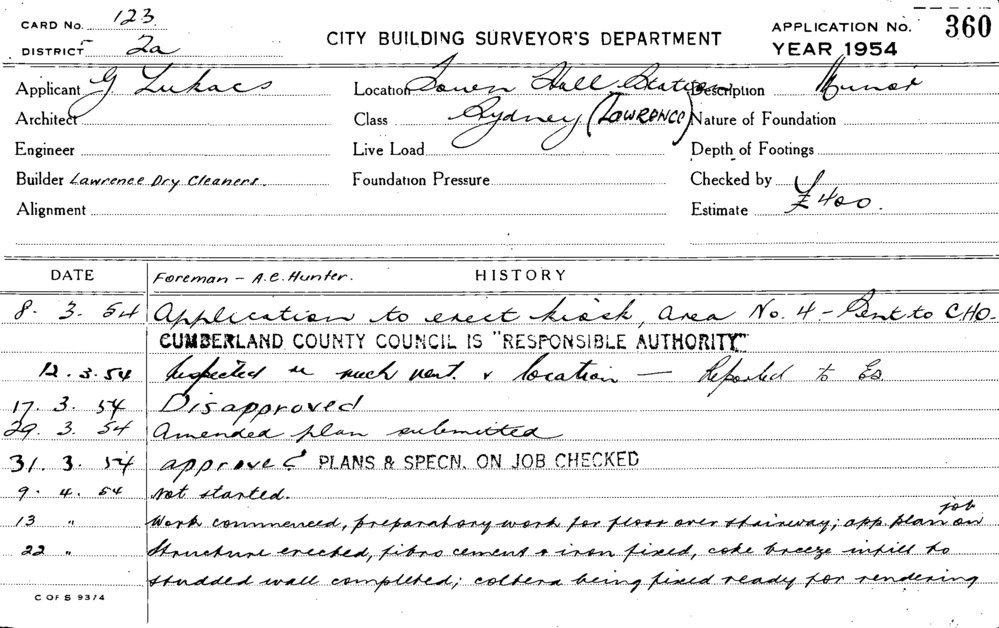 CARD NO. 123 APPLICATION NO. 360
DISTRICT 2a CITY BUILDING SURVEYOR'S DEPARTMENT YEAR 1954
Applicant G Lukacs Location Town Hall Station Description Minor
Architect Class Sydney (LAWRENCE) Nature of Foundation
Engineer Live Load Depth of Footings
Builder Lawrence Dry Cleaners. Foundation Pressure Checked by
Alignment Estimate £400.
DATE Foreman - A.C. Hunter. HISTORY
8. 3. 54 Application to erect kiosk, area No. 4 - Sent to CHO.
CUMBERLAND COUNTY COUNCIL IS "RESPONSIBLE AUTHORITY"
12.3.54 Inspected re mech vent. & location - Reported to
17. 3. 54 Disapproved
29. 3. 54 Amended plan submitted
31. 3. 54 approved PLANS & SPECN. ON JOB CHECKED
9. 4. 54 Not started.
13 " Work commenced, preparatory work for floor over stairway; app plan on job
22 " Structure erected, fibro cement & iron fixed, coke breeze infill to
studded wall completed; being fixed ready for rendering
C OF S 9374